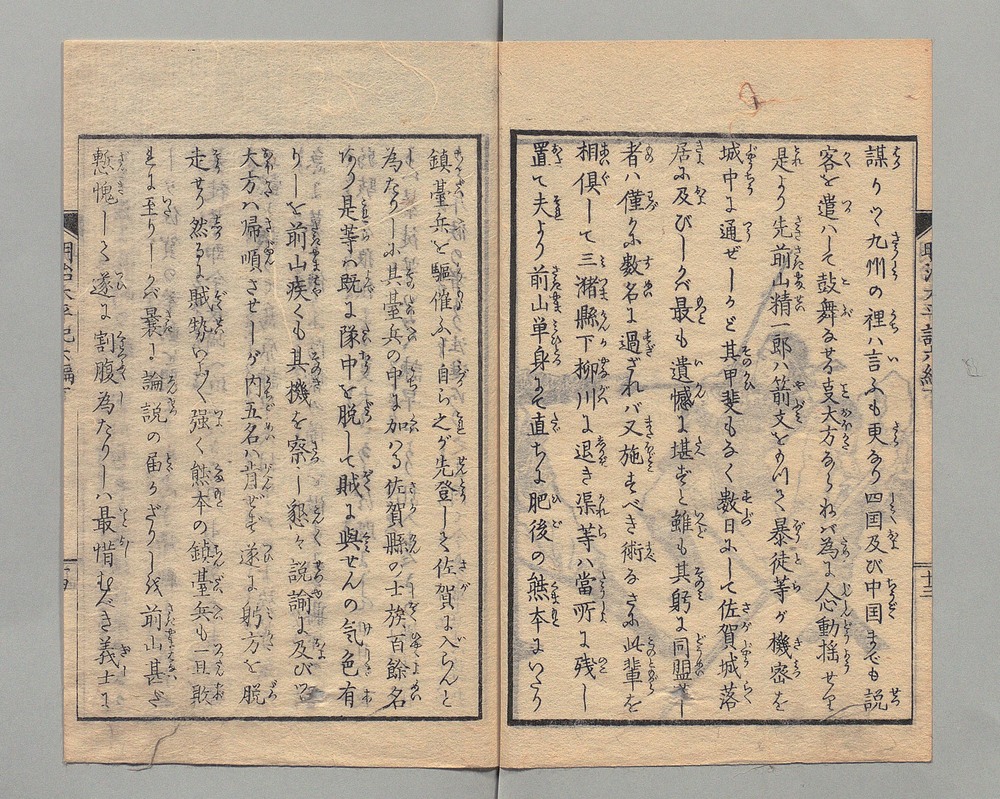 謀りつゝ九州の裡ハ言ふも更なり四囯及び中囯までも説
客を遣ハして鼓舞なせる事大方ならねバ為に人心動揺せり
是より先前山精一郎ハ箭文を以て暴徒等が機密を
城中に通ぜしかど其甲斐もなく数日にして佐賀城落
居に及びしかバ最も遺憾に堪ずと雖も其躬に同盟の
者ハ僅か数名に過ざれバ又施すべき術なきに此輩を
相倶して三潴縣下柳川に退き渠等ハ當所に残し
置て夫より前山単身にて直ちに肥後の熊本にいたり
鎮臺兵を驅催ふし自ら之が先登して佐賀に入らんと
為たりしに其臺兵の中に加はる佐賀縣の士族百餘名
あり是等ハ既に隊中を脱して賊に與せんの気色有
りしを前山疾くも其機を察し懇々説諭に及びつ
大方ハ帰順させしが内五名ハ肯ぜず遂に躬方を脱
走せり然るに賊勢いつく強く熊本の鎮臺兵も一旦敗
に至りしかバ曩に論説の届かざりしを前山甚だ
慙愧して遂に割腹為たりしハ最惜むべき義士に
明治太平記六編下
十三
明治太平記六編下
十四